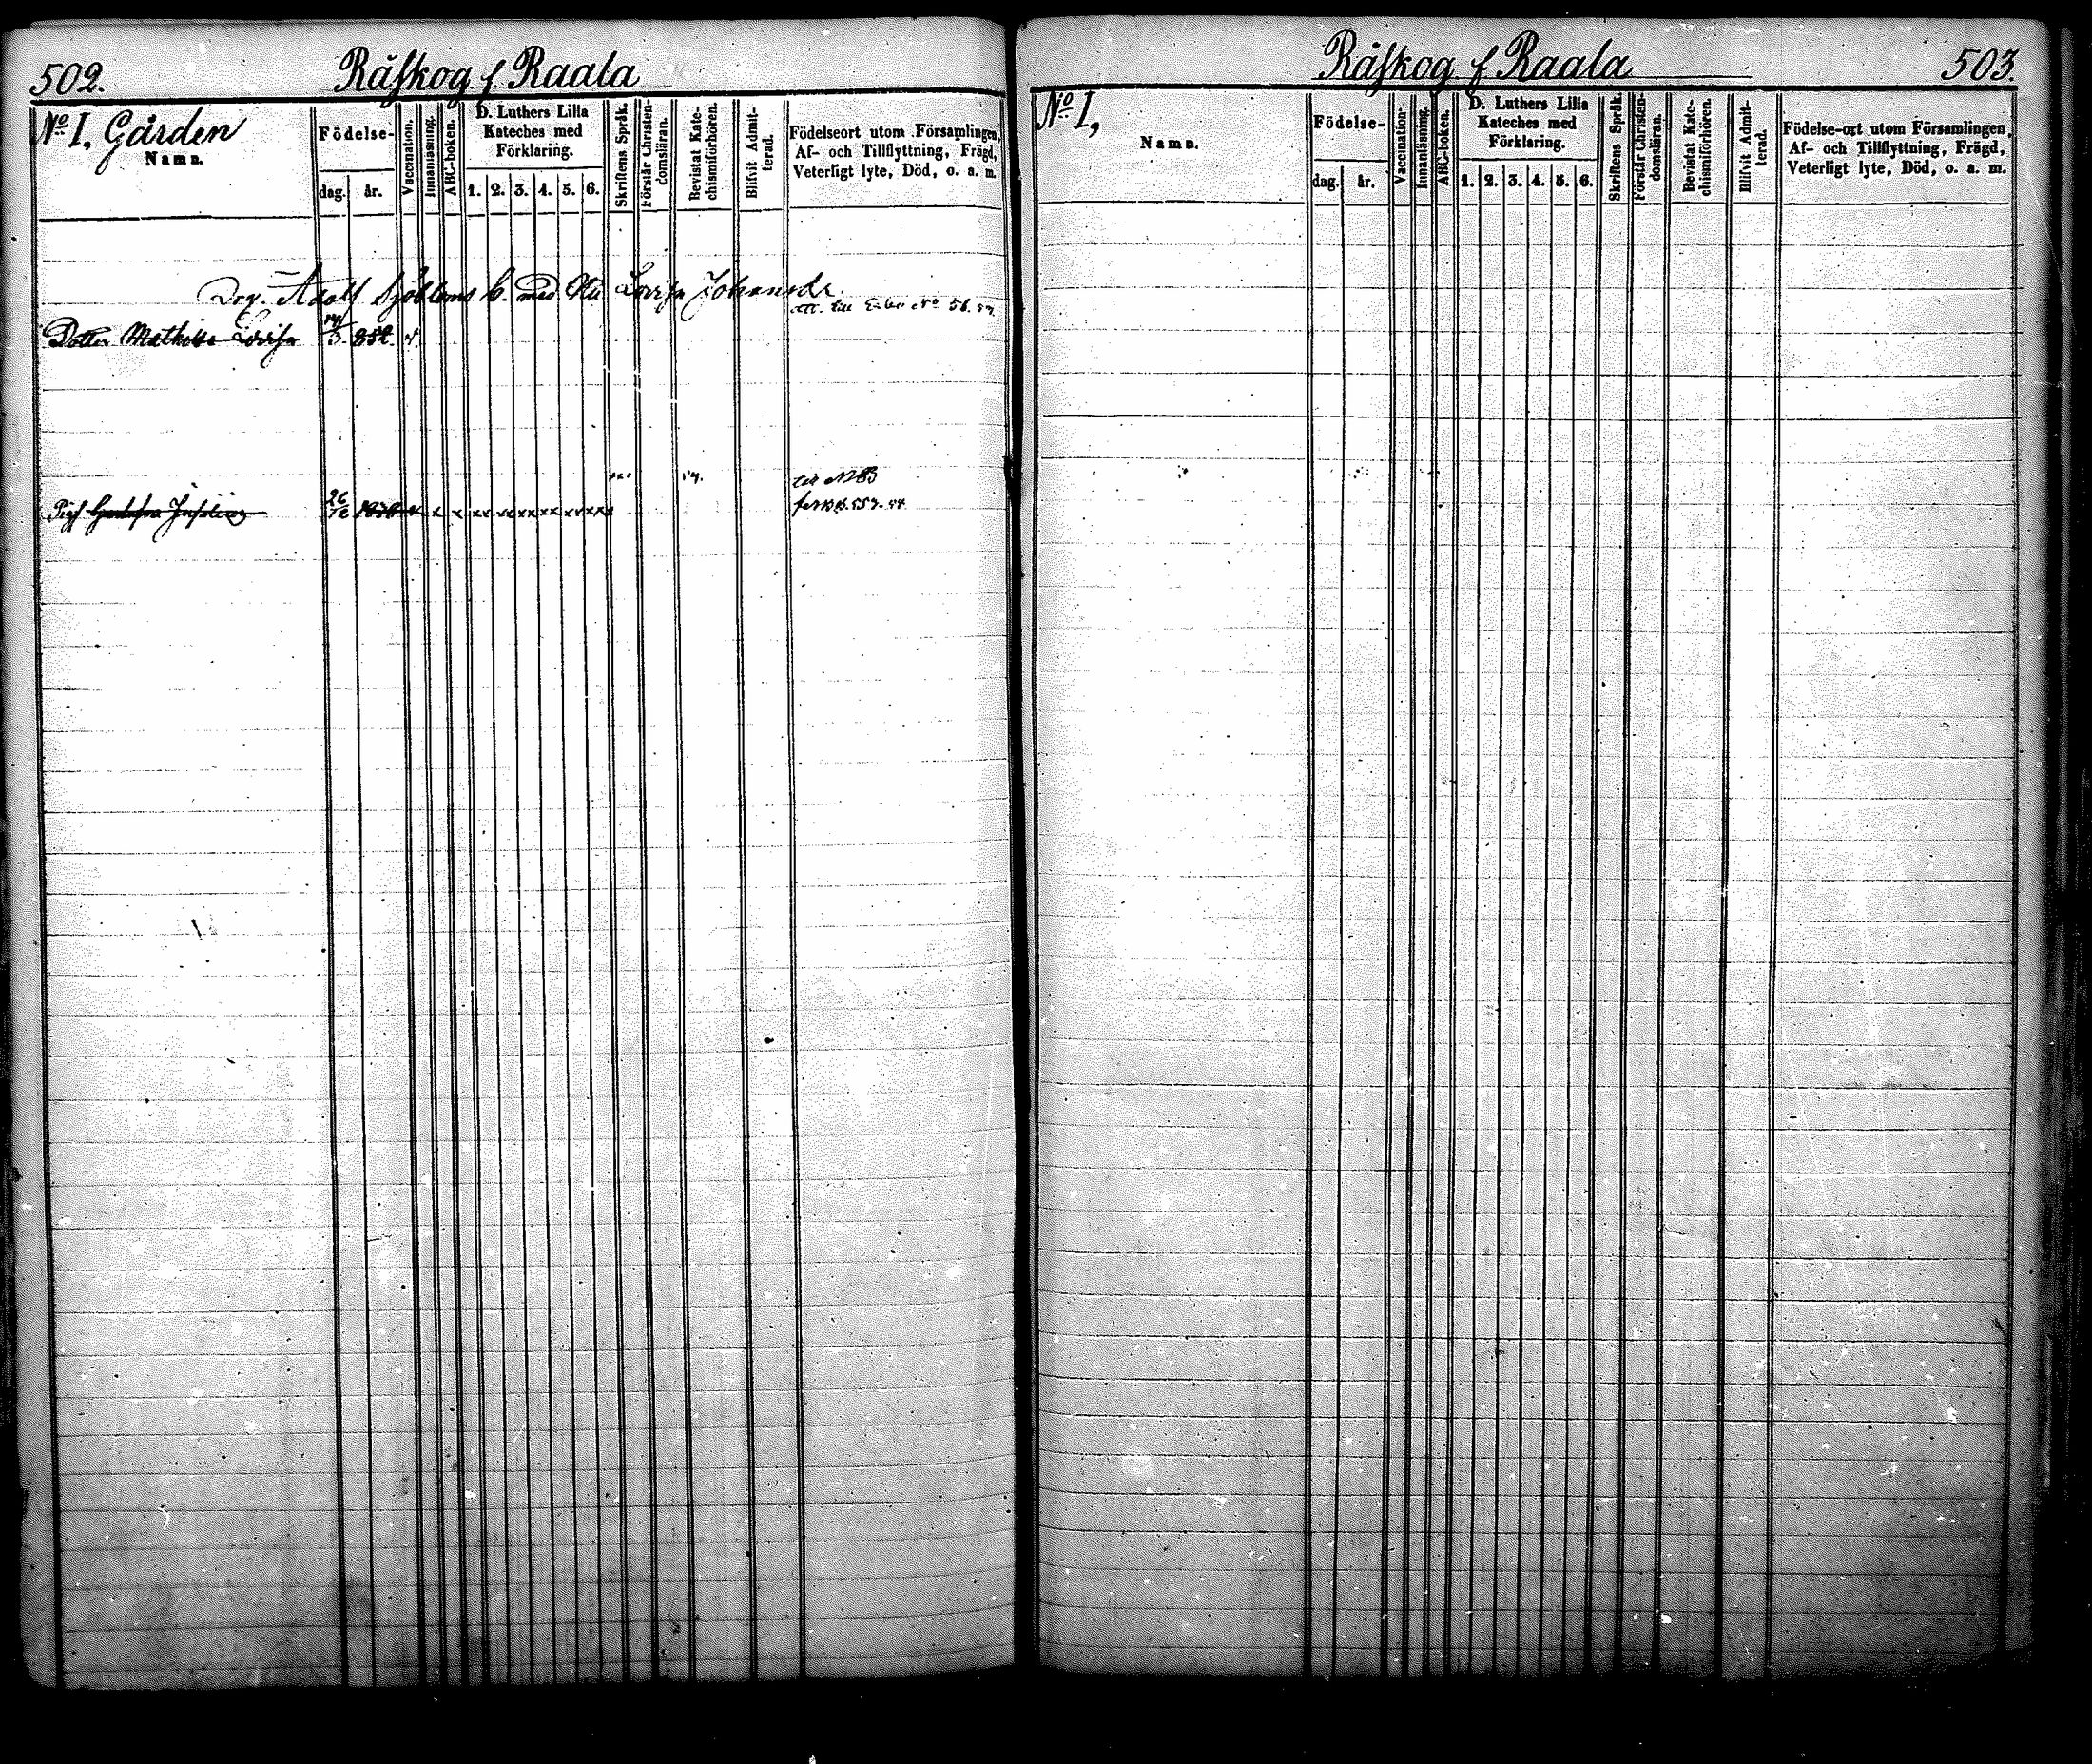 502.
Råskog f Raala
No I. Gården
Namn.
Födelse-
dag. år.
Vaccination.
Innanläsning.
ABC-boken.
D. Luthers Lilla
Kateches med
Förklaring.
1. 2. 3. 4. 5. 6.
Skriftens Språk.
Förstår Christen-
domsläran.
Bevistat Kate-
chismiförhören.
Blifvit Admit-
terad.
Födelseort utom Församlingen,
Af- och Tillflyttning, Frägd,
Veterligt lyte, Död, o. a. m.
Adolf Sjöbloms med Lovisa Johansdr
att. till No 56. 57
Dotter Mathilda Lovisa 14/3 852. v
57. till
Pig 26/12 v x x xx xx xx xx xx xx
503.
Råskog f Raala
No I,
Namn.
Födelse-
dag. år.
Vaccination.
Innanläsning.
ABC-boken.
D. Luthers Lilla
Kateches med
Förklaring.
1. 2. 3. 4. 5. 6.
Skriftens Språk.
Förstår Christen-
domsläran.
Bevistat Kate-
chismiförhören.
Blifvit Admit-
terad.
Födelse-ort utom Församlingen,
Af- och Tillflyttning, Frägd,
Veterligt lyte, Död, o. a. m.